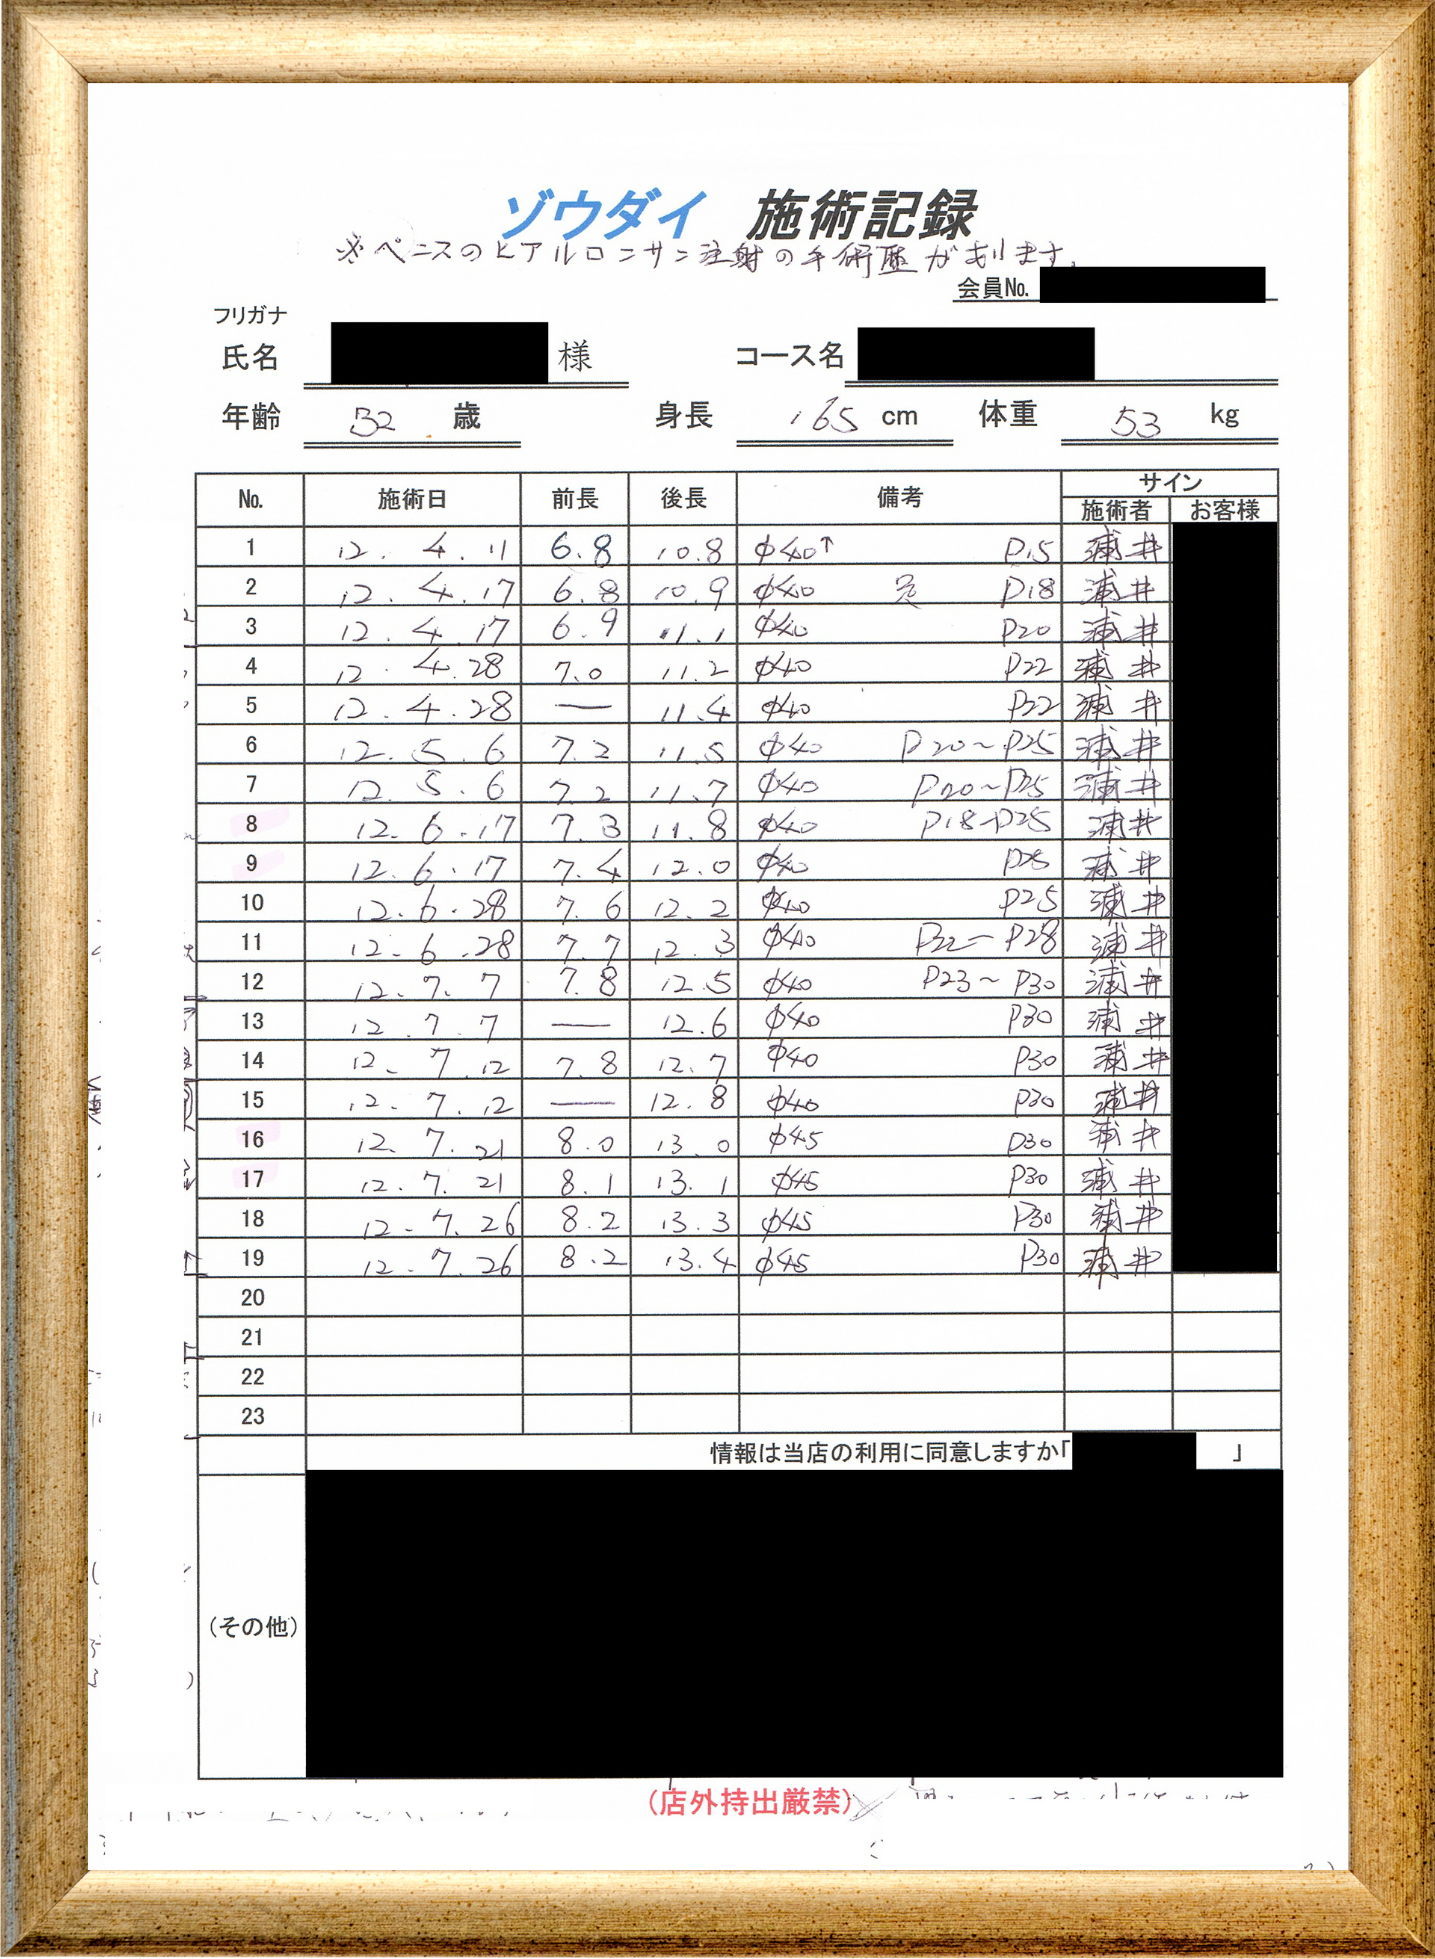 ゾウダイ 施術記録
※ペニスのヒアルロンサン注射の手術歴があります。
会員No.
フリガナ
氏名 様 コース名
年齢 32 歳 身長 165 cm 体重 53 kg
No. 施術日 前長 後長 備考 サイン
施術者 お客様
1 12. 4. 11 6.8 10.8 φ40↑ P15 浦井
2 12. 4. 17 6.8 10.9 φ40 P18 浦井
3 12. 4. 17 6.9 11.1 φ40 P20 浦井
4 12. 4. 28 7.0 11.2 φ40 P22 浦井
5 12. 4. 28 — 11.4 φ40 P22 浦井
6 12. 5. 6 7.2 11.5 φ40 P20~P25 浦井
7 12. 5. 6 7.2 11.7 φ40 P20~P25 浦井
8 12. 6. 17 7.3 11.8 φ40 P18~P25 浦井
9 12. 6. 17 7.4 12.0 φ40 P25 浦井
10 12. 6. 28 7.6 12.2 φ40 P25 浦井
11 12. 6. 28 7.7 12.3 φ40 P22~P28 浦井
12 12. 7. 7 7.8 12.5 φ40 P23~P30 浦井
13 12. 7. 7 — 12.6 φ40 P30 浦井
14 12. 7. 12 7.8 12.7 φ40 P30 浦井
15 12. 7. 12 — 12.8 φ40 P30 浦井
16 12. 7. 21 8.0 13.0 φ45 P30 浦井
17 12. 7. 21 8.1 13.1 φ45 P30 浦井
18 12. 7. 26 8.2 13.3 φ45 P30 浦井
19 12. 7. 26 8.2 13.4 φ45 P30 浦井
20
21
22
23
情報は当店の利用に同意しますか「 」
(その他)
(店外持出厳禁)